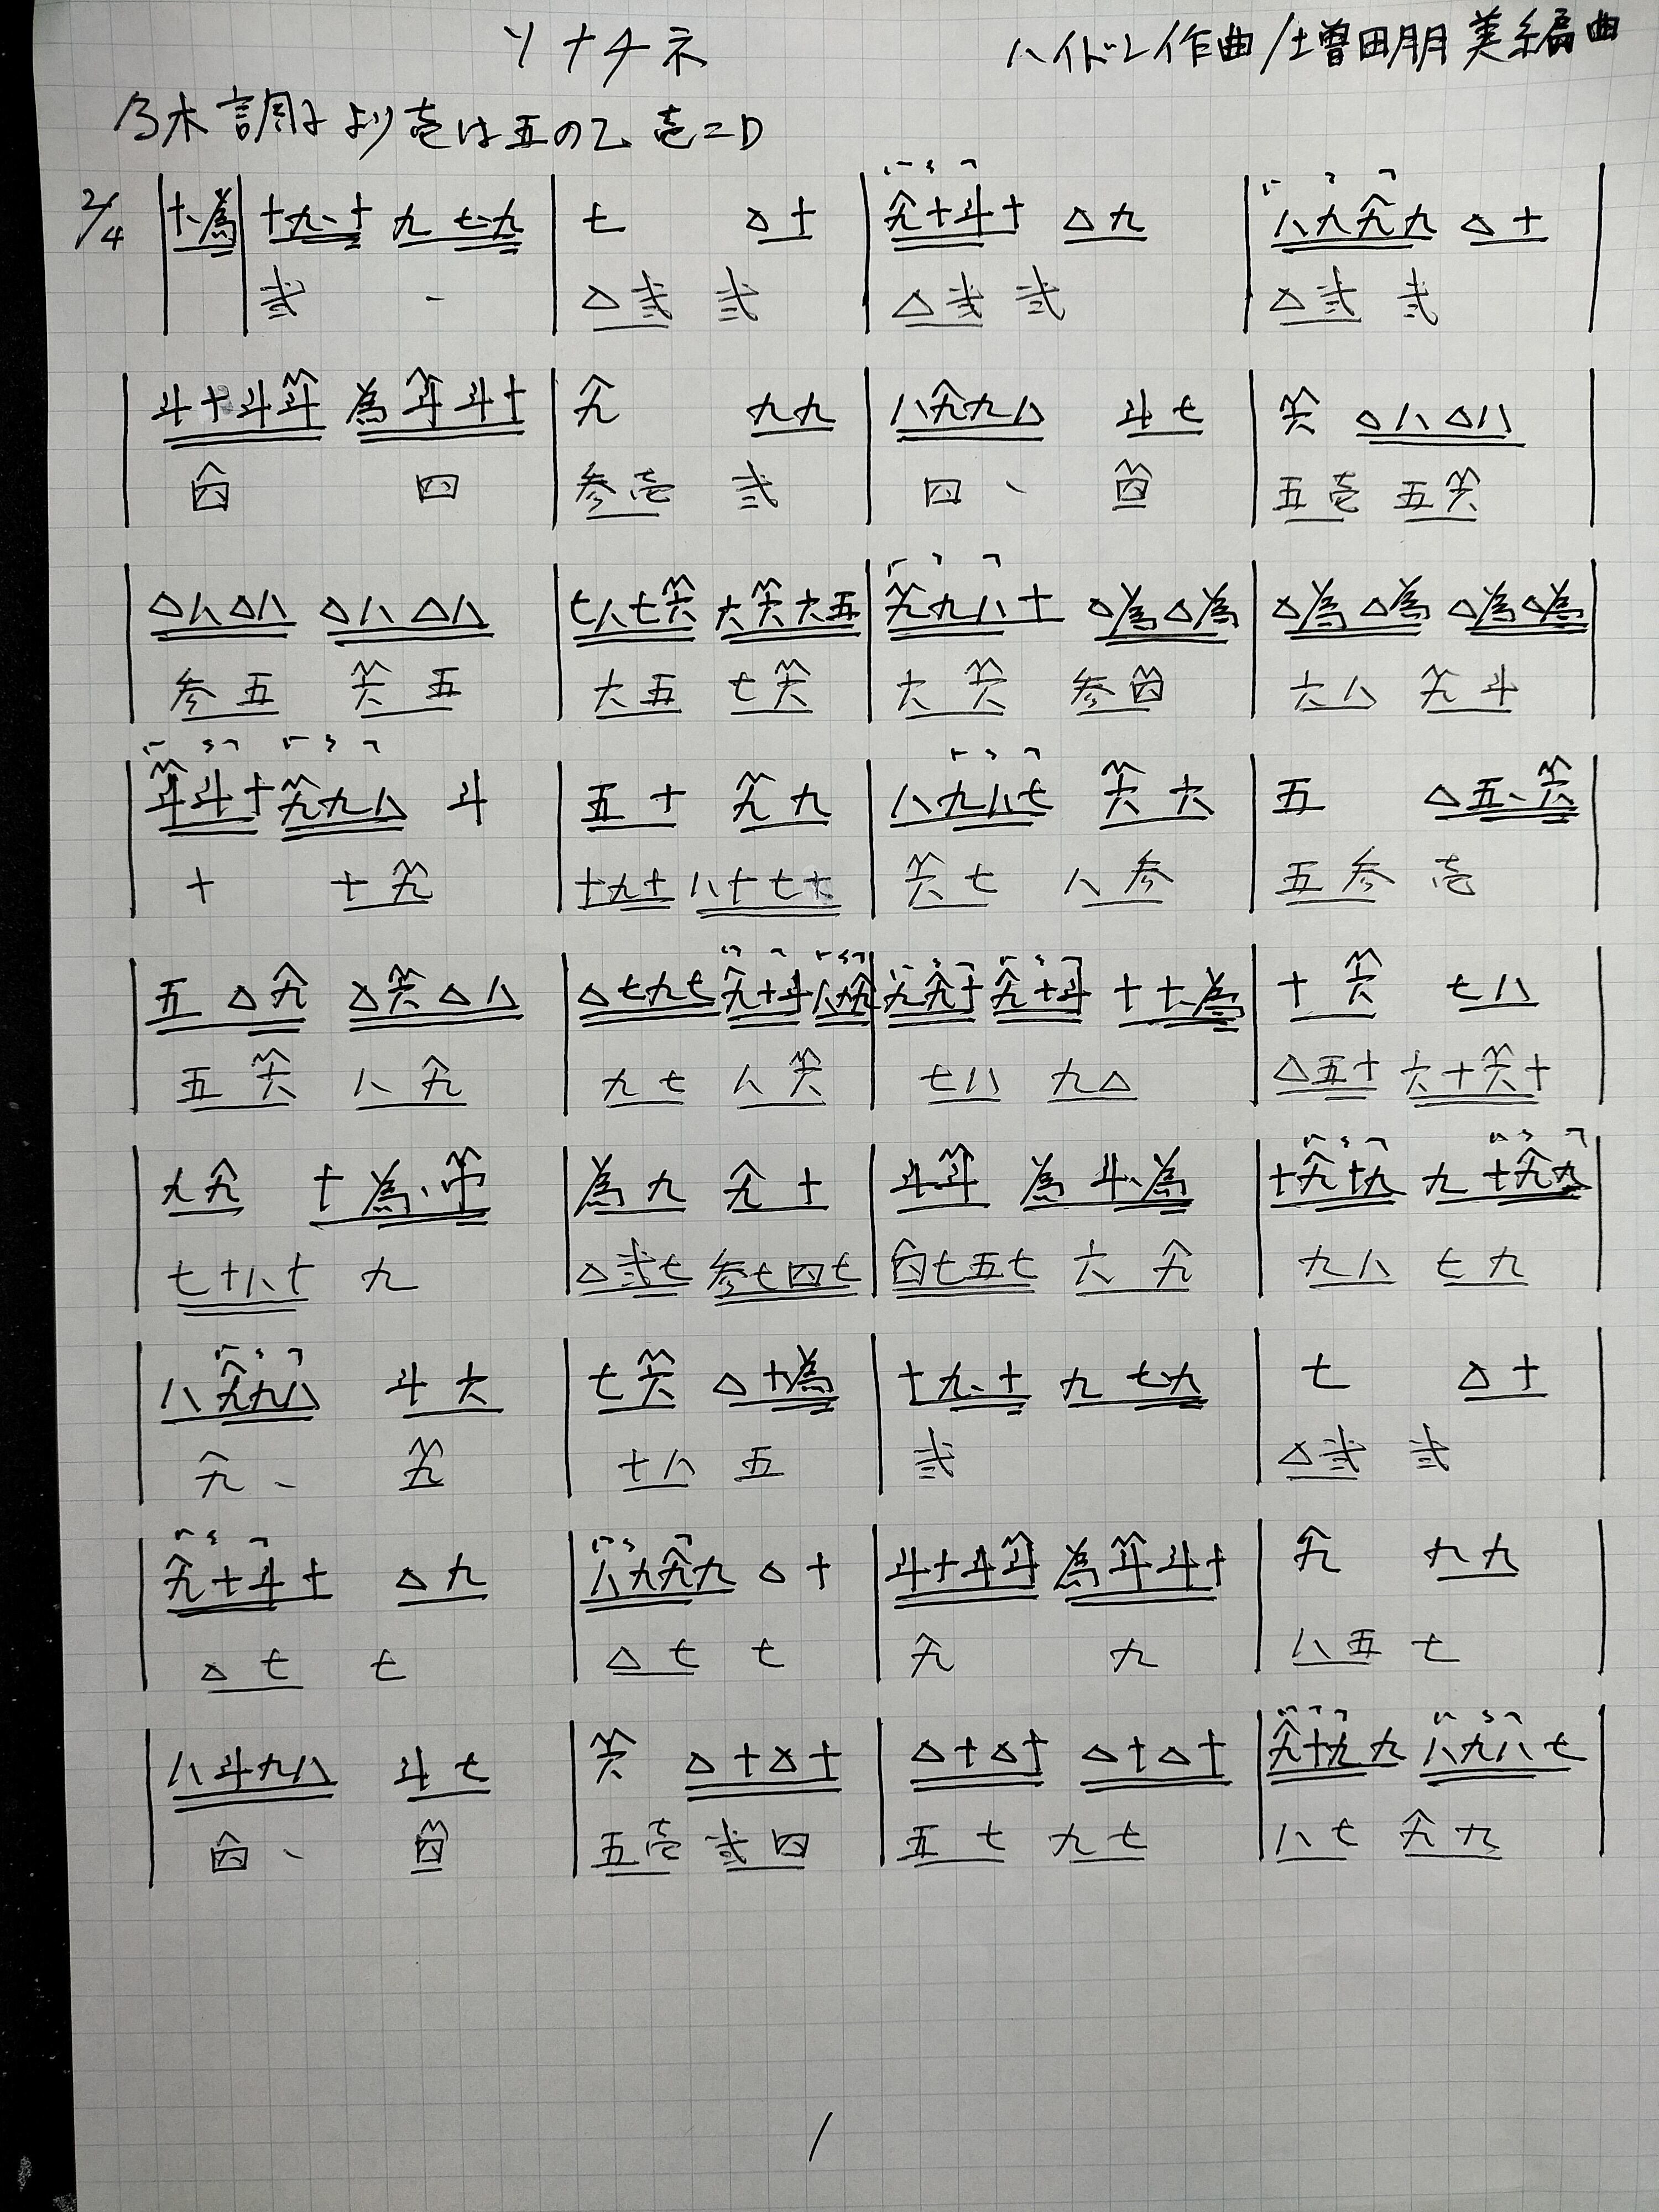 ソナチネ ハイドン作曲/増田朋美編曲
乃木調子より壱は五の乙 壱=D
2/4 十、為 十九、十 九 七、九 七 △十 九十斗十 △九 八九九九 △十
弐 - △弐 弐 △弐 弐 △弐 弐
斗十斗斗 為斗斗十 九 九九 八九九八 斗七 六 △八△八
四 四 参壱 弐 四、 四 五壱 五六
△八△八 △八△八 七八七六 六六六五 九九八十 △為△為 △為△為 △為△為
参五 六五 六五 七六 六六 参四 六八 九斗
斗斗十九九八 斗 五十 九九 八九八七 六六 五 △五、六
十 十九 十九十 八十七十 六七 八参 五参 壱
五△九 △六△八 △七九七九十斗八九 九九十九十斗 十十、為 十六 七八
五六 八九 九七 八六 七八 九△ △五十 六十六十
九九 十為、斗 為九 九十 斗斗 為斗、為 十九十九 九十九九
七十八十 九 △弐七 参七四七 四七五七 六九 九八 七九
八九九八 斗六 七六 △十、為 十九、十 九七、九 七 △十
九、 五 七八 五 弐 △弐 弐
九十斗十 △九 八九九九 △十 斗十斗斗 為斗斗十 九 九九
△七 七 △七 七 九 九 八五 七
八斗九八 斗七 六 △十△十 △十△十 △十△十 九十九九 八九八七
四、 四 五壱 弐四 五七 九七 八七 九九
1